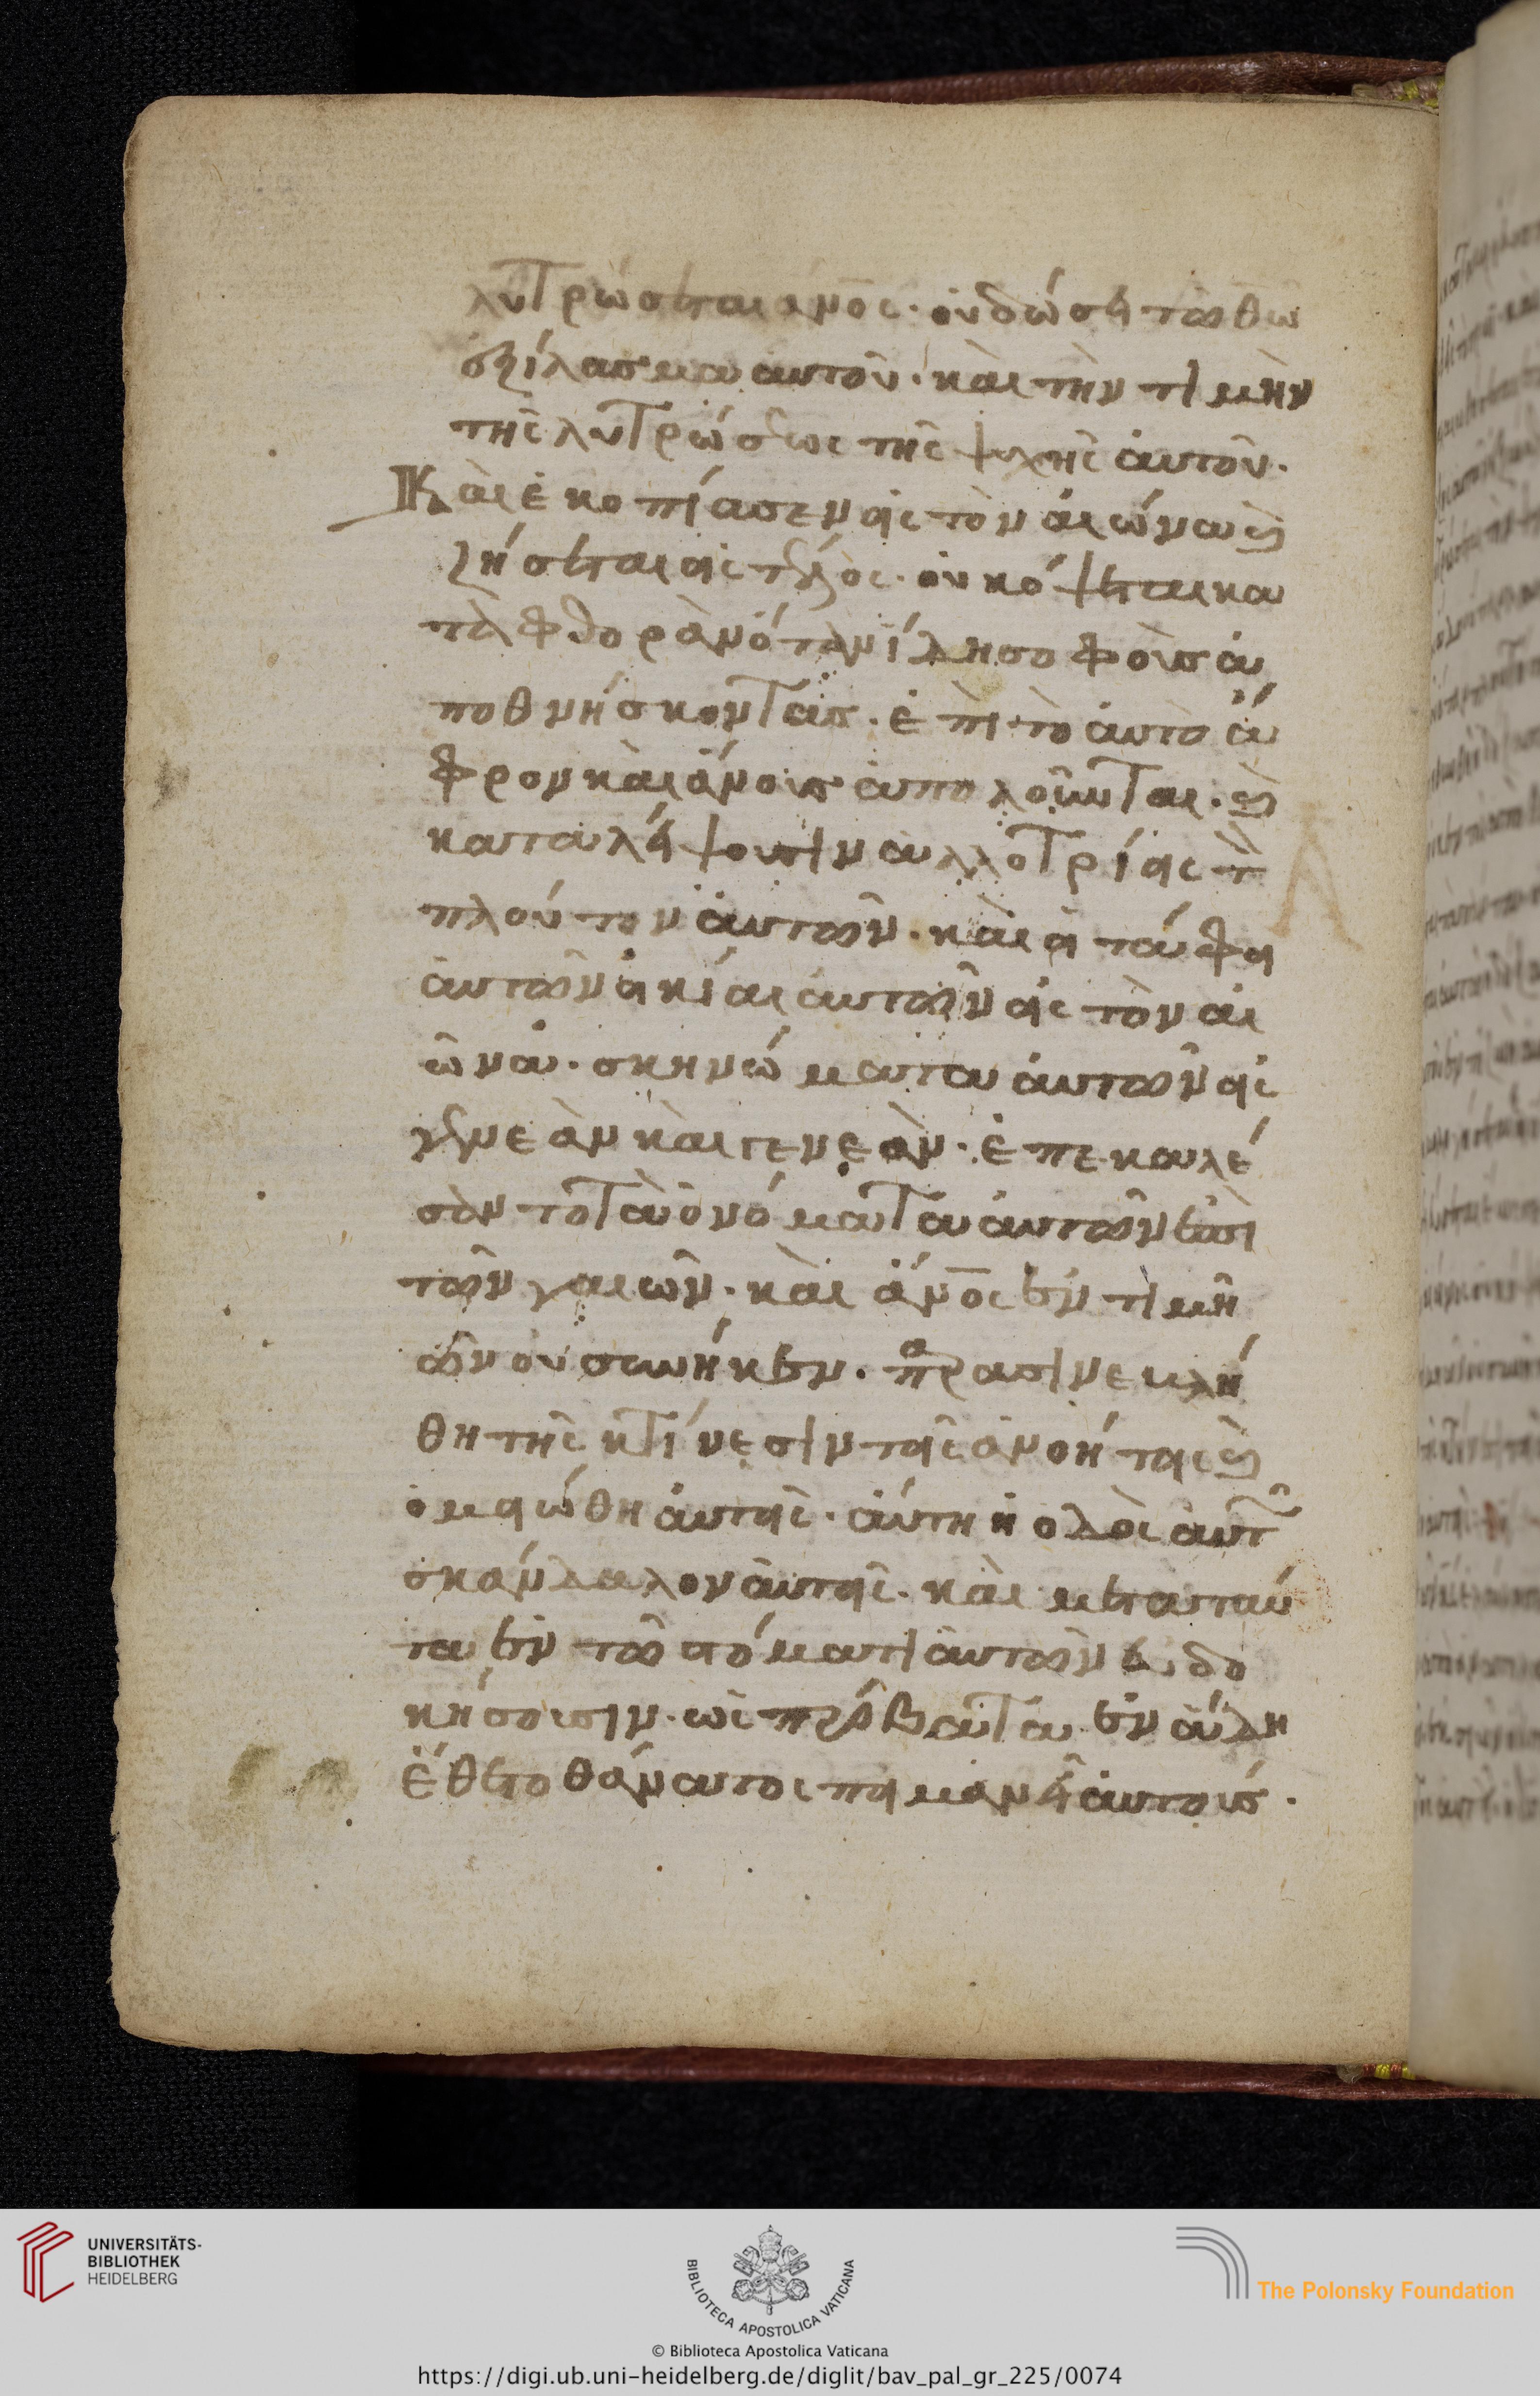 λυτρώσεται ἄνος· οὐ δώσει τῶ θω
ἐξίλασμα αὐτοῦ· καὶ τὴν τιμὴν
τῆς λυτρώσεως τῆς ψυχῆς αὐτοῦ·
Καὶ ἐκοπίασεν εἰς τὸν αἰῶνα καὶ
ζήσεται εἰς τέλος· οὐκ ὄψεται κα
τὰ φθορὰν ὅταν ἴδη σοφοὺς ἀ
ποθνήσκοντας· ἐπὶ τὸ αὐτὸ ἄ
φρον καὶ ἄνους ἀπολοῦνται· καὶ
καταλείψουσιν ἀλλοτρίοις τὸν
πλοῦτον αὐτῶν· καὶ οἱ τάφοι
αὐτῶν οἰκίαι αὐτῶν εἰς τὸν αἰ
ῶνα· σκηνώματα αὐτῶν εἰς
γενεὰν καὶ γενεὰν· ἐπεκαλέ
σαντο τὰ ὀνόματα αὐτῶν ἐπὶ
τῶν γαιῶν· καὶ ἄνος ἐν τιμῆ
ὢν οὐ συνῆκεν· παρασυνεβλή
θη τοῖς κτήνεσιν τοῖς ἀνοήτοις καὶ
ὁμοιώθη αὐτοῖς· αὕτη ἡ ὁδὸς αὐτῶν
σκάνδαλον αὐτοῖς· καὶ μετὰ ταῦ
τα ἐν τῶ στόματι αὐτῶν εὐδο
κήσουσιν· ὡς πρόβατα ἐν ἅδη
ἔθετο θάνατος ποιμανεῖ αὐτούς·
UNIVERSITÄTS-
BIBLIOTHEK
HEIDELBERG
BIBLIOTECA APOSTOLICA VATICANA
The Polonsky Foundation
© Biblioteca Apostolica Vaticana
https://digi.ub.uni-heidelberg.de/diglit/bav_pal_gr_225/0074